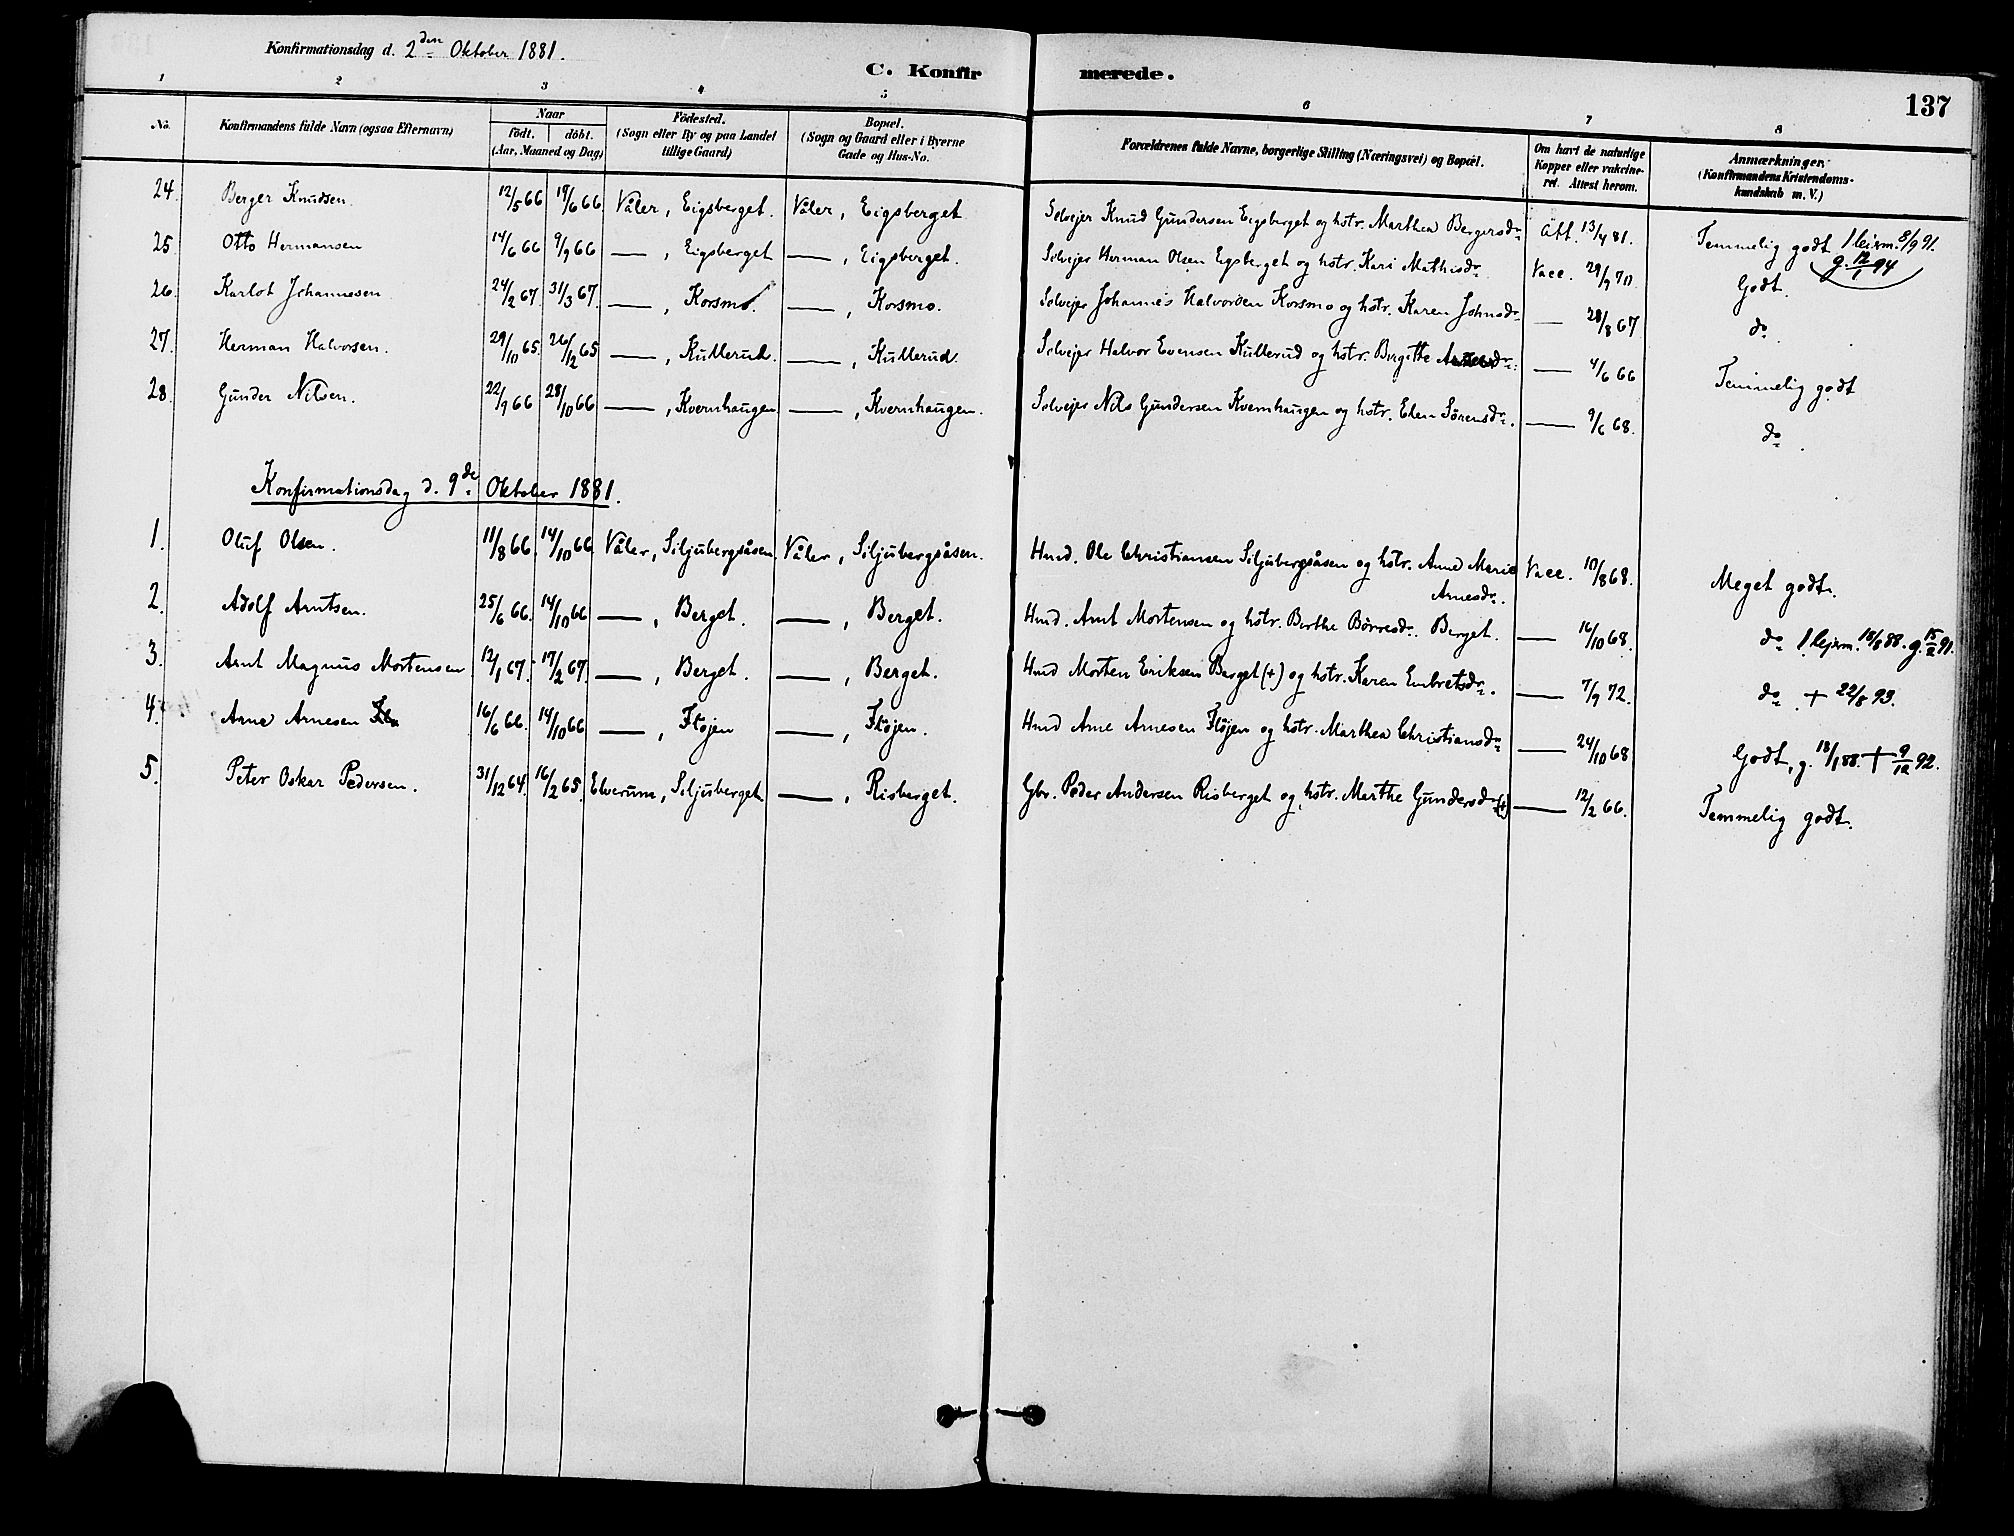 Konfirmationsdag d. 2den Oktober 1881.
C. Konfir merede.
137
1 2 3 4 5 6 7 8
No. Konfirmandens fulde Navn (ogsaa Efternavn) Naar födt. döbt. (Aar, Maaned og Dag) Födested. (Sogn eller By og paa Landet tillige Gaard) Bopæl. (Sogn og Gaard eller i Byerne Gade og Hus-No. Forældrenes fulde Navne, borgerlige Stilling (Næringsvei) og Bopæl. Om havt de naturlige Kopper eller vakcineret. Attest herom. Anmærkninger. (Konfirmandens Kristendomskundskab m. V.)
24. Berger Knudsen. 12/5 66 17/6 66 Våler, Eigsberget. Våler, Eigsberget Selvejer Knud Gundersen Eigsberget og hstr. Marthea Bergersdr. Att. 13/4 81. Temmelig godt 1 leierm. 8/9 91. g. 12/1 94
25 Otto Hermansen 14/6 66 9/9 66 —, Eigsberget —, Eigsberget. Selvejer Herman Olsen Eigsberget og hstr. Kari Mathisdr. Vacc. 29/9 70 Godt.
26. Karlot Johannesen 24/2 67 31/3 67. —, Korsmo. —, Korsmo. Selvejer Johannes Halvorsen Korsmo og hstr. Karen Johnsdr. — 28/8 67 do.
27. Herman Halvorsen. 29/10 65. 26/12 65 —, Kullerud. —, Kullerud. Selvejer Halvor Evensen Kullerud og hstr. Birgitte — 4/6 66 Temmelig godt
28. Gunder Nilsen. 22/9 66 28/10 66 —, Kvernhaugen —, Kvernhaugen. Selvejer Nils Gundersen Kvernhaugen og hstr. Elen Sörensdr. — 9/6 68. do.
Konfirmationsdag d. 9de Oktober 1881.
1. Oluf Olsen. 11/8 66. 14/10 66 Våler, Siljubergsåsen Våler, Siljubergsåsen. Hmd. Ole Christiansen Siljubergsåsen og hstr. Anne Marie Arnesdr. Vacc. 10/8 68. Meget godt.
2. Adolf Arntsen. 25/6 66. 14/10 66 —, Berget. —, Berget. Hmd. Arnt Mortensen og hstr. Berthe Börresdr. Berget. — 16/10 68. do 1 lejerm. 18/8 88. g. 15/2 91.
3. Arnt Magnus Mortensen 12/1 67. 17/2 67. —, Berget. —, Berget. Hmd Morten Eriksen Berget (+) og hstr. Karen Embretsdr. — 7/9 72. do. + 22/8 93.
4. Arne Arnesen 16/6 66. 14/10 66 —, Fløjen —, Fløjen. Hmd Arne Arnesen Fløjen og hstr. Marthea Christiansdr — 24/10 68 Godt, g. 18/1 88. + 9/12 92.
5. Peter Oskar Pedersen. 31/12 64. 16/2 65. Elverum, Siljuberget —, Risberget. Gbr. Peder Andersen Risberget og hstr. Marthe Gundersdr (+) — 12/2 66. Temmelig godt.